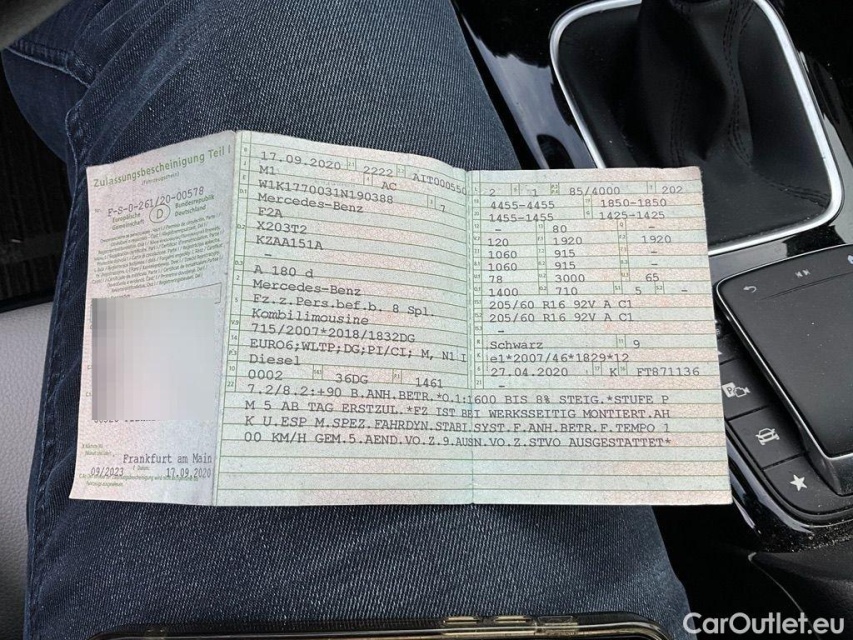 Zulassungsbescheinigung Teil I
(Fahrzeugschein)
F-S-0-261/20-00578
Europäische Gemeinschaft D Bundesrepublik Deutschland
Frankfurt am Main
09/2023 17.09.2020
17.09.2020 2222 AIT000550
M1 AC
W1K1770031N190388 7
Mercedes-Benz
F2A
X203T2
KZAA151A
–
A 180 d
Mercedes-Benz
Fz.z.Pers.bef.b. 8 Spl.
Kombilimousine
715/2007*2018/1832DG
EURO6;WLTP;DG;PI/CI; M, N1 I
Diesel
0002 36DG 1461
2 1 85/4000 202
4455-4455 1850-1850
1455-1455 1425-1425
– 80 –
120 1920 1920
1060 915 –
1060 915 –
78 3000 65
1400 710 5 –
205/60 R16 92V A C1
205/60 R16 92V A C1
–
Schwarz 9
e1*2007/46*1829*12
27.04.2020 K FT871136
–
7.2/8.2:+90 B.ANH.BETR.*0.1:1600 BIS 8% STEIG.*STUFE P
M 5 AB TAG ERSTZUL.*FZ IST BEI WERKSSEITIG MONTIERT.AH
K U.ESP M.SPEZ.FAHRDYN.STABI.SYST.F.ANH.BETR.F.TEMPO 1
00 KM/H GEM.5.AEND.VO.Z.9.AUSN.VO.Z.STVO AUSGESTATTET*
CarOutlet.eu